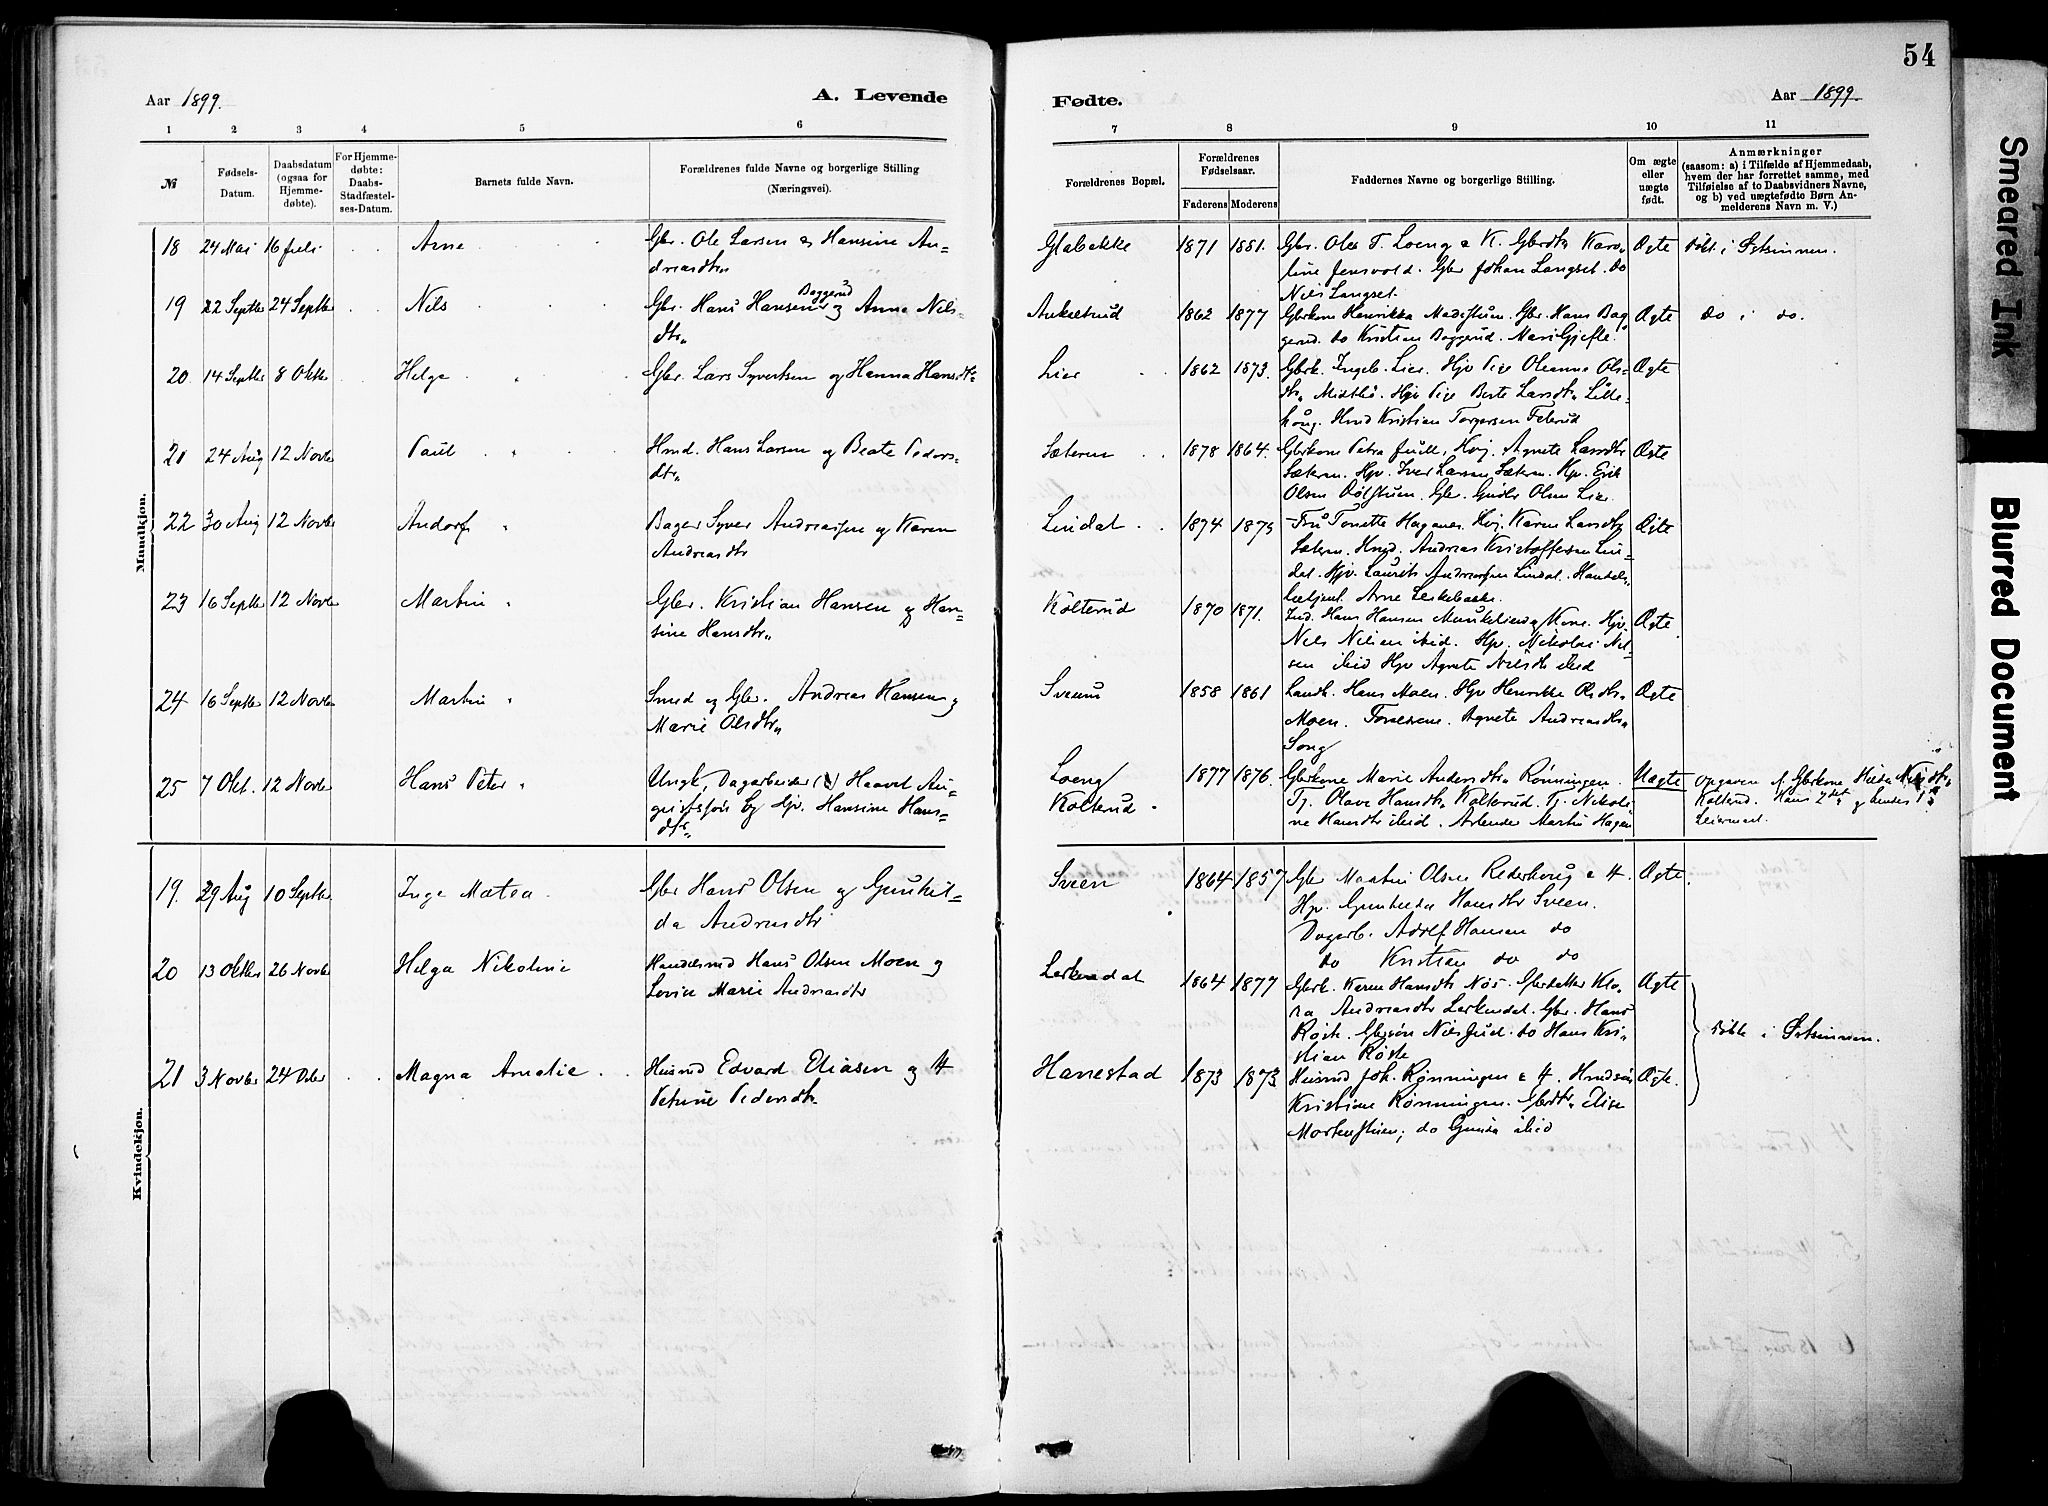 54
Aar 1899. A. Levende
Fødte. Aar 1899.
1 2 3 4 5 6
7 8 9 10 11
No Fødsels-Datum. Daabsdatum (ogsaa for Hjemmedøbte). For Hjemmedøbte: Daabs-Stadfæstelses-Datum. Barnets fulde Navn. Forældrenes fulde Navne og borgerlige Stilling (Næringsvei).
Forældrenes Bopæl. Forældrenes Fødselsaar. Faderens Moderens Faddernes Navne og borgerlige Stilling. Om ægte eller uægte født. Anmærkninger (saasom: a) i Tilfælde af Hjemmedaab, hvem der har forrettet samme, med Tilføielse af to Daabsvidners Navne, og b) ved uægtefødte Børn Anmelderens Navn m. V.)
Mandkjøn.
18 24 Mai 16 Juli Arne Gbr. Ole Larsen og Hansine An-
dreasdtr
19 22 Septbr 24 Septbr Nils Gbr. Hans Hansen Baggerud og Anna Nils-
dtr
20 14 Septbr 8 Oktbr Helge Gbr. Lars Syvertsen og Hanna Hansdtr
21 24 Aug 12 Novbr Paul Hmd. Hans Larsen og Beate Peders-
dtr
22 30 Aug 12 Novbr Andorf Bager Syver Andreassen og Karen
Andreasdtr
23 16 Septbr 12 Novbr Martin Gbr. Kristian Hansen og Han-
sine Hansdtr
24 16 Septbr 12 Novbr Martin Smed og Gbr. Andreas Hansen og
Marie Olsdtr
25 7 Okt. 12 Novbr Hans Peter Ungk, Dagarbeider Haavel Au-
gustssøn og Hansine Hans-
dtr
Kvindekjøn.
19. 29 Aug 10 Septbr Inga Matea Gbr Hans Olsen og Gunhil-
da Andreasdtr
20 13 Oktbr 26 Novbr Helga Nikoline Handelsmd Hans Olsen Moen og
Lovise Marie Andreasdtr
21 3 Novbr 24 Dcbr Magna Amalie Husmd Edvard Eliasen og H
Petrine Pedersdtr
1871 1881. Gbr. Ole T. Loeng & K. Gbrdtr Karo-
line Jensvold. Gbr Johan Langset. do Ægte Døbt i Østsinnen.
Nils Langset.
1862 1877 Gbrkone Henrikka Gbr. Hans Bag- Ægte do i do.
gerud. do Kristian Baggerud. Mari Gjefle.
Lier 1862 1873. Gbrk. Ingeb. Lier. Hjv Pige Oleanne Ols- Ægte
dtr Hjv Pige Berte Larsdtr Lille-
haug. Hmd Kristian Torgersen Felerud
Sæteren 1878 1864. Gbrkone Petra Juell, Hvj. Agnete Larsdtr Ægte
Sæteren. Hjv. Iver Larsen Sæteren. Hjv. Erik
Olsen Gbr. Olsen Lier.
Lindal 1874 1875 Fru Tonette Haganes. Hvj. Karen Larsdtr Ægte
Sæteren. Hmd. Andreas Kristoffersen Lin-
dal. Hjv. Laurits Andreassen Lindal. Handels-
betjent Arne
Kolterud 1870 1871. Ind. Hans Hansen og Kone. Hjv. Ægte
Nils Nilsen ibid. Hjv. Nikolai Nil-
sen ibid Hjv Agnete Nilsdtr ibid
Sveum 1858 1861 Landh. Hans Moen. Hjv Henrikke Olsdtr Ægte
Moen. Agnete Andreasdtr
Song
Loeng 1877 1876. Gbrkone Marie Andersdtr Rønningen. Uægte Opgaven af Gbrkone
Kolterud Tj. Olave Hansdtr Kolterud. Tj. Nikoli- Kolterud. Hans 2det og hendes 1ste
ne Hansdtr ibid. Arbeider Martin Hagen Leiermaal.
Sveen 1864 1857 Gbr Martin Olsen & H. Ægte.
Hjv. Gunhilda Hansdtr Sveen.
Dagarb. Adolf Hansen do
do Kristian do do
Lerkendal 1864 1877 Gbrk. Karen Hansdtr Nøs. Gbrdatter Kla- Ægte
ra Andreasdtr Lerkendal. Gbr. Hans
Røste. Gbrsøn Nils Juul. do Hans Kri- Døbte i Østsinnen.
stian Røste
Hanestad 1873 1873 Husmd Joh. Rønningen & H. Ægte.
Kristiane Rønningen. Gbrdtr Elise
do Gunda ibid
Smeared Ink
Blurred Document